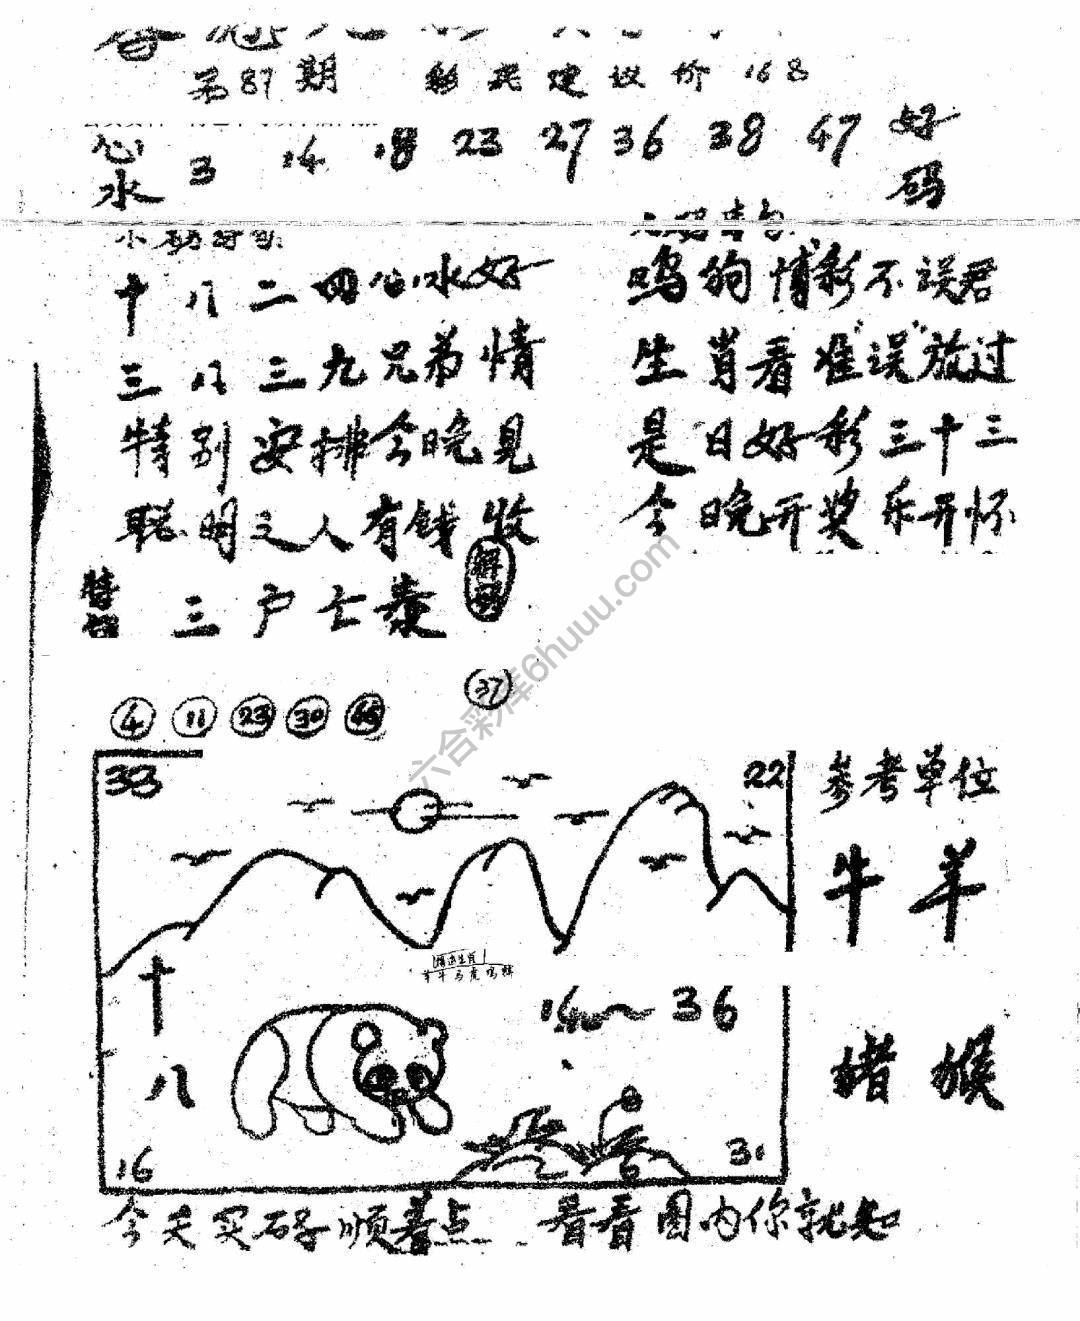 第87期 彩民建议价168
心水 3 14 18 23 27 36 38 47 好码
十八二四心水好
三八三九兄弟情
特别安排今晚见
聪明之人有钱收
三户七
鸡狗博彩不误君
生肖看准"误"放过
是日好彩三十三
今晚开奖乐开怀
解码
37
4 11 23 30 46
六合彩库6huuu.com
33
22
参考单位
牛 羊
精选生肖
羊牛马虎鸡猴
十八
14～36
猪 猴
16
31
今天买码子顺着点 看看图内你就知